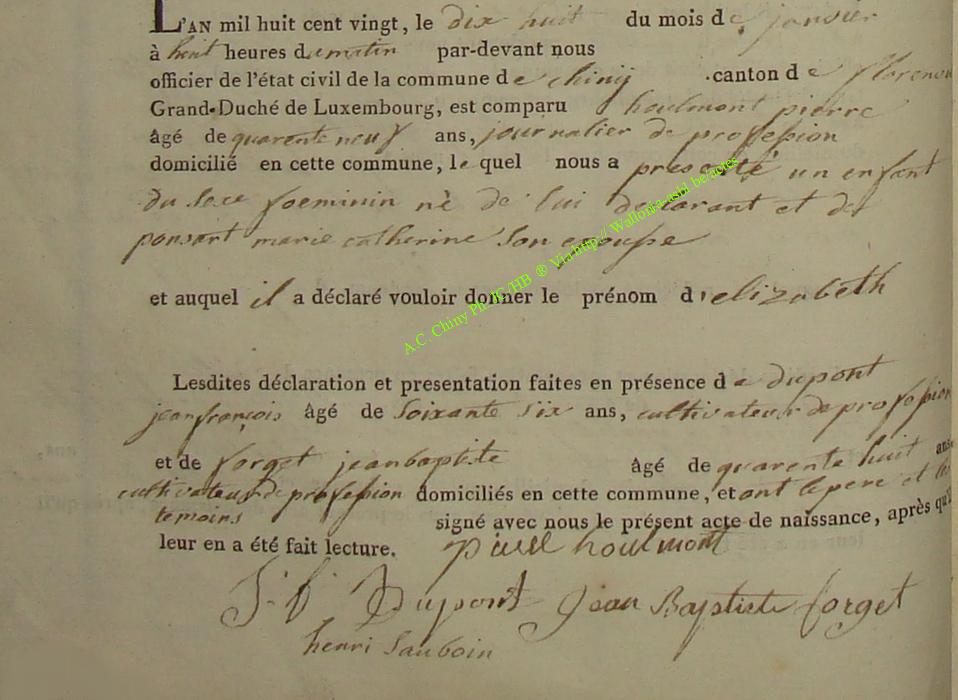 L'AN mil huit cent vingt, le dix huit du mois de janvier
à huit heures du matin par-devant nous
officier de l'état civil de la commune de chinij canton de florenvi
Grand-Duché de Luxembourg, est comparu houlmont pierre
âgé de quarente neuf ans, journalier de profession
domicilié en cette commune, le quel nous a presenté un enfant
du sexe foeminin nè de lui declarant et de
ponsart marie catherine son epouse
et auquel il a déclaré vouloir donner le prénom d'elizabeth
A.C. Chiny Ph JC/HB ® Via http// Wallonia-asbl be/actes
Lesdites déclaration et presentation faites en présence de dupont
jean françois âgé de soixante six ans, cultivateur de profession
et de forget jean baptiste âgé de quarente huit ans
cultivateur de profession domiciliés en cette commune, et ont le pere et les
temoins signé avec nous le présent acte de naissance, après qu'il
leur en a été fait lecture. pierre houlmont
J. f. Dupont Jean Baptiste forget
henri Sauboin